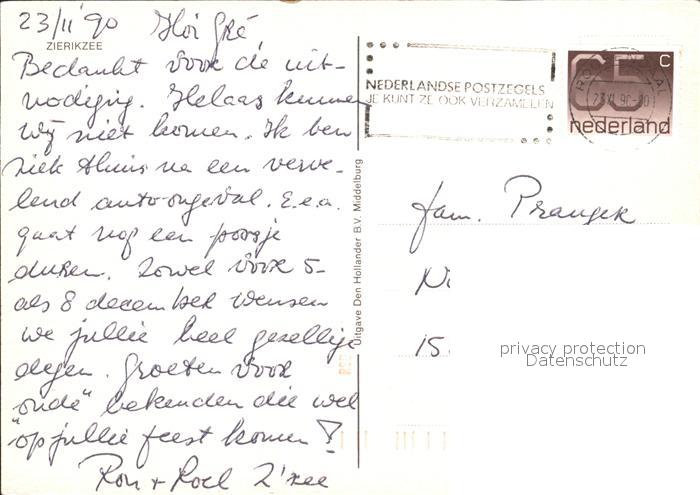 23/11 '90 Hoi Gré
ZIERIKZEE
Bedankt voor de uit-
nodiging. Helaas kunnen
wij niet komen. Ik ben
ziek thuis na een verve-
lend auto-ongeval. E.e.a.
gaat nog een poosje
duren. Zowel voor 5-
als 8 december wensen
we jullie heel gezellige
dagen. Groeten voor
"oude" bekenden die wel
op jullie feest komen!
Ron + Roel Z'zee
Uitgave Den Hollander B.V. Middelburg
NEDERLANDSE POSTZEGELS
JE KUNT ZE OOK VERZAMELEN
65 C
nederland
23.XI.90
fam.
15
privacy protection
Datenschutz